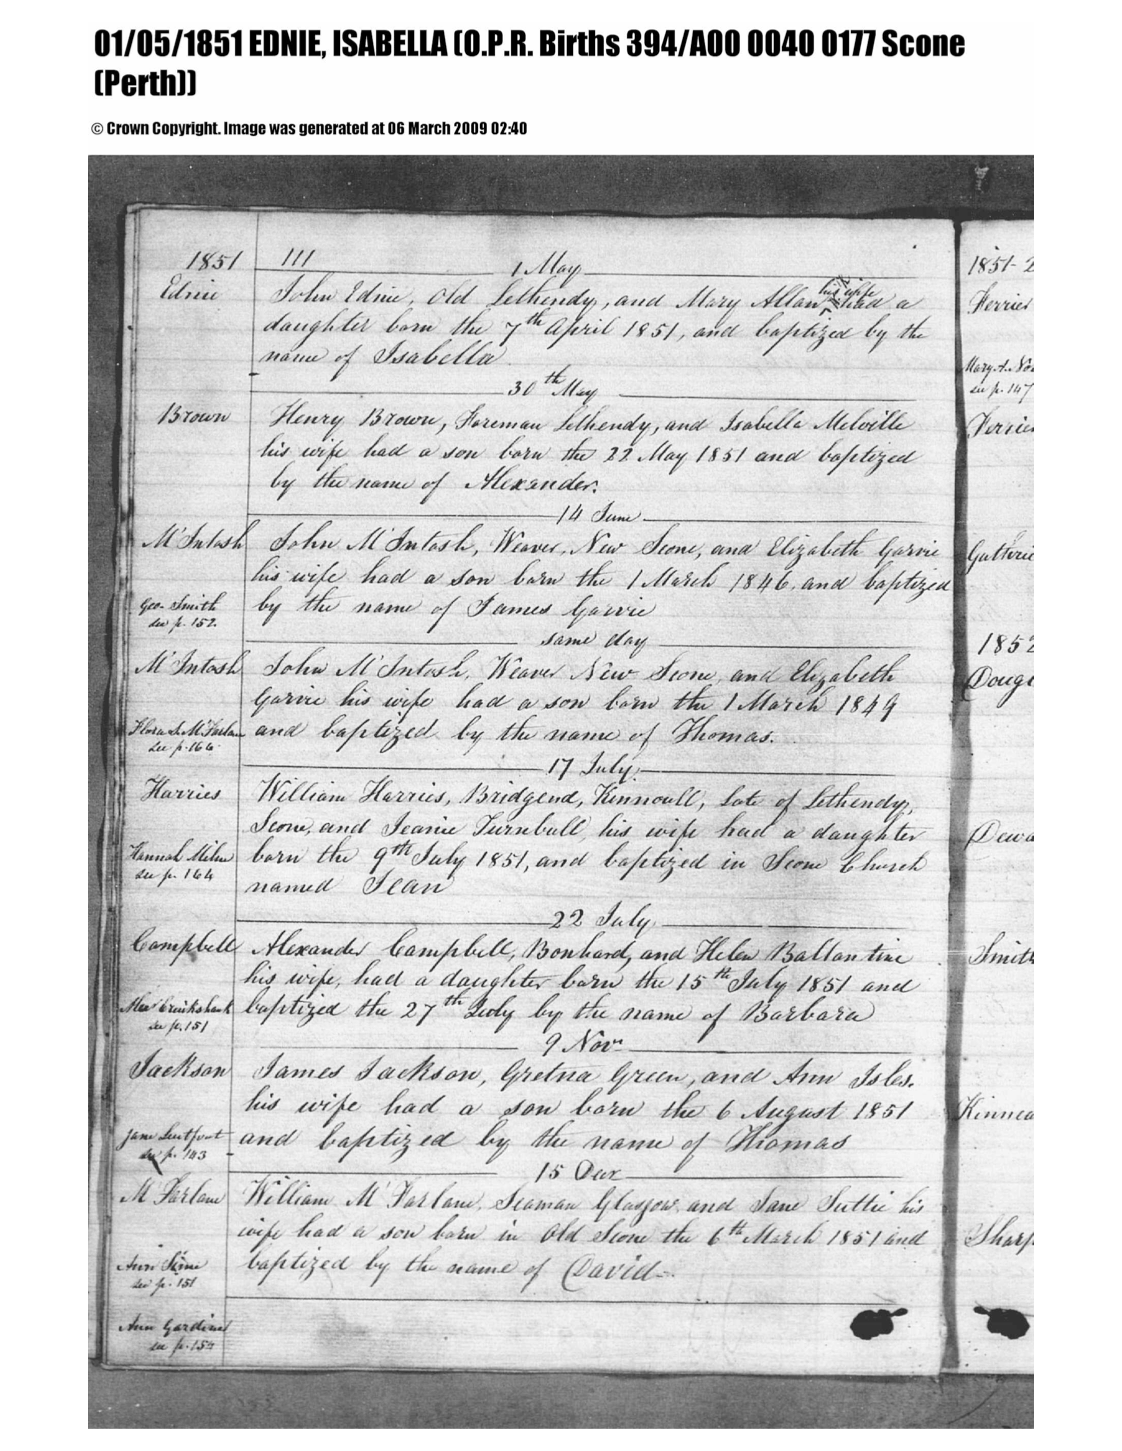 01/05/1851 EDNIE, ISABELLA (O.P.R. Births 394/A00 0040 0177 Scone
(Perth))
© Crown Copyright. Image was generated at 06 March 2009 02:40
1851 111
1 May
Ednie John Ednie, Old Lethendy, and Mary Allan his wife had a
daughter born the 7th April 1851, and baptized by the
name of Isabella
30th May
Brown Henry Brown, Foreman Lethendy, and Isabella Melville
his wife had a son born the 22 May 1851 and baptized
by the name of Alexander.
14 June
M'Intosh John M'Intosh, Weaver, New Scone, and Elizabeth Garvie
his wife had a son born the 1 March 1846, and baptized
Geo. Smith by the name of James Garvie
see p. 152.
same day
M'Intosh John M'Intosh, Weaver New Scone, and Elizabeth
Garvie his wife had a son born the 1 March 1849
and baptized by the name of Thomas.
see p. 166
17 July
Harries William Harries, Bridgend, Kinnoull, late of Lethendy,
Scone, and Jeanie Turnbull, his wife had a daughter
Hannah Milne born the 9th July 1851, and baptized in Scone Church
see p. 164
named Jean
22 July
Campbell Alexander Campbell, Bonhard, and Helen Ballantine
his wife, had a daughter born the 15th July 1851 and
Alex Cruikshank baptized the 27th July by the name of Barbara
see p. 151
9 Novr
Jackson James Jackson, Gretna Green, and Ann Isles.
his wife had a son born the 6 August 1851
Jane and baptized by the name of Thomas
see p. 143
15
M'Farlane William M'Farlane, Seaman Glasgow, and Jane Suttie his
wife had a son born in Old Scone the 6th March 1851 and
Ann Sime baptized by the name of David.
see p. 151
Ann Gardiner
see p.
1851-2
Ferrier
Mary A.
see p. 147
Ferrie
Guthrie
1852
Doug
Dewa
Smith
Kinnea
Sharp